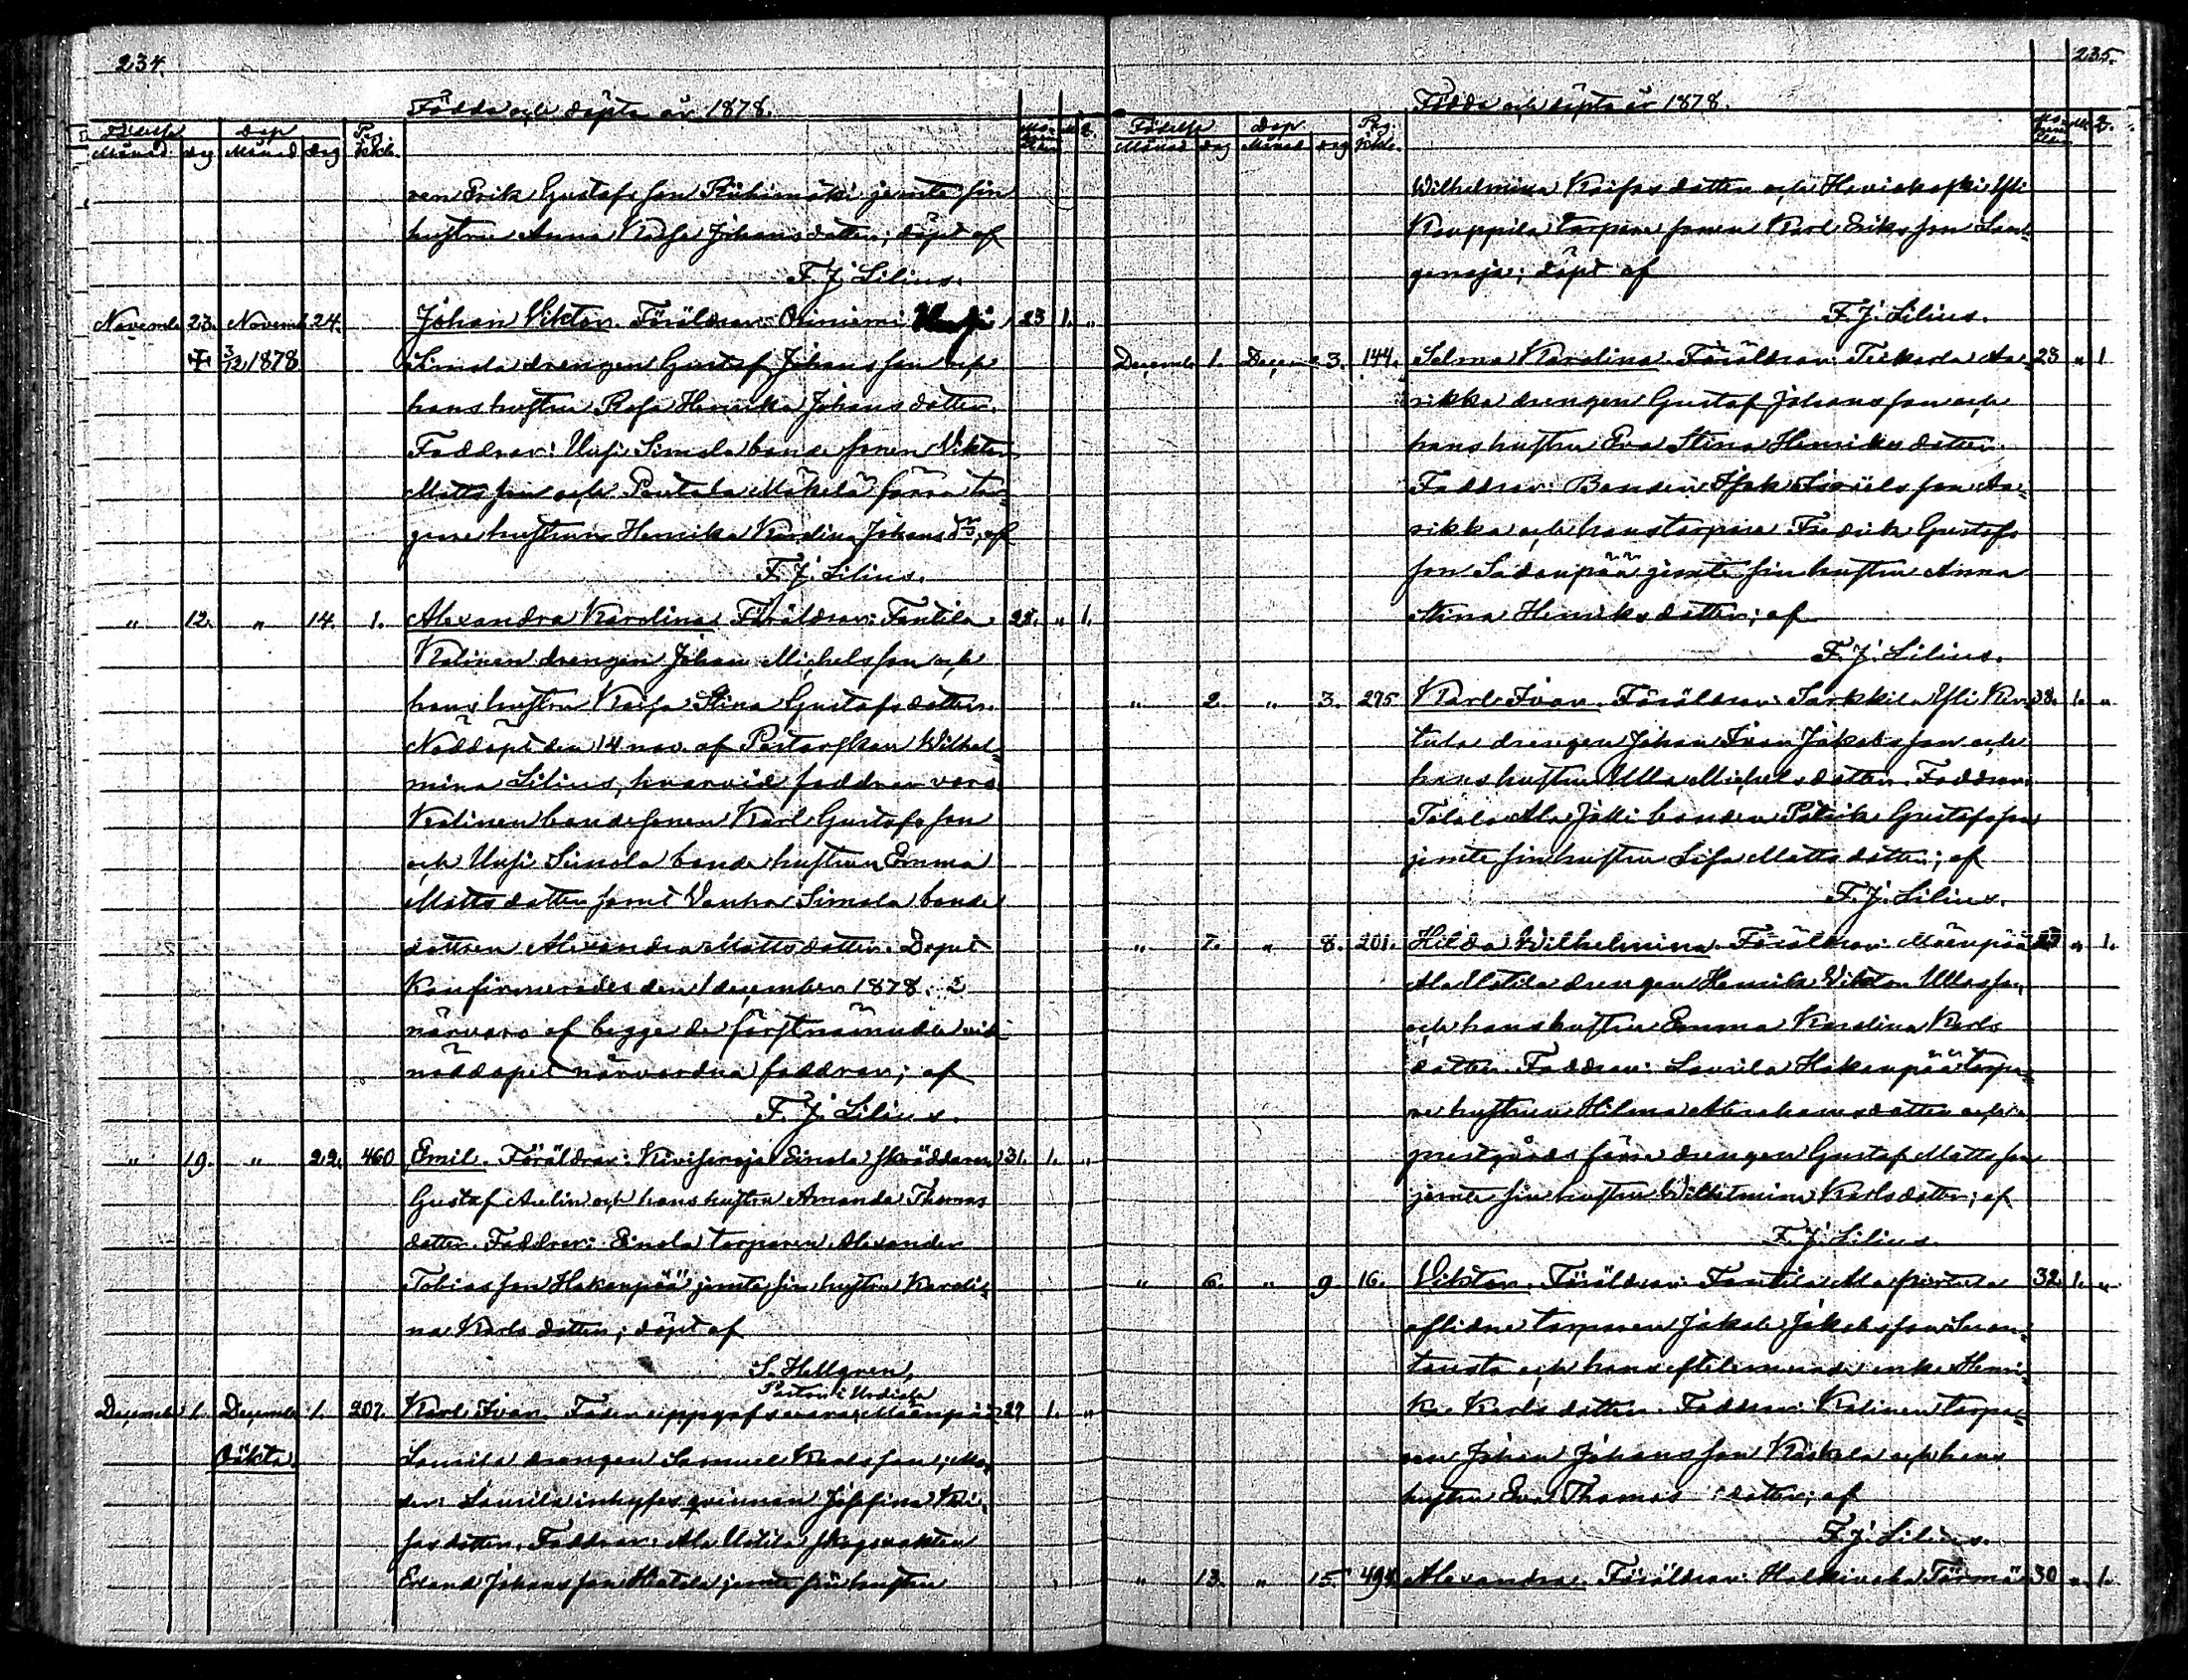 234.
Födda och döpta år 1878.
Födelse Dop Pag. i Kkb. Moderns ålder M. Q.
Månad dag Månad dag
ren Erik Gustafsson Riihimäki jemte sin
hustru Anna Kaisa Johansdotter; döpt af
F. J. Lilius.
Novemb. 23. Novemb. 24. Johan Viktor. Föräldrar: Orinie­mi 23 1. "
† 3/12 1878 Simola drengen Gustaf Johansson och
hans hustru Rosa Henrika Johansdotter.
Faddrar: Uusi Simola bonde sonen Viktor
Mattsson och Pontala Mäkelä förra tor-
pare hustrun Henrika Karolina Johansdr; af
F. J. Lilius.
" 12. " 14. 1. Alexandra Karolina. Föräldrar: Fantila 28. " 1.
Kalinen drengen Johan Michelsson och
hans hustru Kaisa Stina Gustafsdotter.
Nöddöpt den 14 nov. af Pastorskan Wilhel-
mina Lilius, hvarvid faddrar voro
Kalinen bondesonen Karl Gustafsson
och Uusi Simola bonde hustrun Emma
Mattsdotter samt Vanha Simola bonde
dottren Alexandra Mattsdotter. Dopet
Konfirmerades den 1 december 1878 i
närvaro af begge de förstnämnda vid
nöddopet närvarda faddrar; af
F. J. Lilius.
" 19. " 22. 460 Emil. Föräldrar: Kivisenoja Einola skräddaren 31. 1. "
Gustaf Aulin och hans hustru Amanda Thomas
dotter. Faddrar: Einola torparen Alexander
Tobiasson Hakanpää jemte sin hustru Karoli-
na Karlsdotter; döpt af
S. Hellgren,
Pastor i Urdiala
Decemb. 1. Decemb. 1. 207. Karl Ivar. Fader uppgafs vara: Mäenpää 27 1. "
Oäkta. Laurila drengen Samuel Karlsson; Mo-
der: Laurila inhyses qvinnan Josefina Kai-
sasdotter. Faddrar: Ala Uotila skogvakten
Erland Johansson Alatalo jemte sin hustru
235.
Födda och döpta år 1878.
Födelse Dop Pag. i Kkb. Moderns ålder M. Q.
Månad dag Månad dag
Wilhelmina Kaisasdotter och Haviokoski Yli
Kauppila torpare sonen Karl Eriksson Lan-
genoja; döpt af
F. J. Lilius.
Decemb. 1. Decem. 3. 144. Selma Karolina. Föräldrar: Teikarla Aa- 23 " 1
rikka drengen Gustaf Johansson och
hans hustru Eva Stina Henriksdotter.
Faddrar: Bonden Isak Israelsson Aa-
rikka och hans torpare Fredrik Gustafs
son Sadanpää jemte sin hustru Anna
Stina Henriksdotter; af
F. J. Lilius.
" 2. " 3. 275 Karl Ivar. Föräldrar: Sarkkila Yli Ker- 38. 1. "
tula drengen Johan Ivar Jakobsson och
hans hustru Ulla Michelsdotter. Faddrar:
Tölölä Ala Jälli bonden Patrik Gustafsson
jemte sin hustru Lisa Mattsdotter; af
F. J. Lilius.
" 7. " 8. 201. Hilda Wilhelmina. Föräldrar: Mäenpää " 1.
Ala Uotila drengen Henrik Viktor Ullasson
och hans hustru Emma Karolina Karls
dotter. Faddrar: Laurila Hakanpää torpa-
re hustrun Hilma Abrahamsdotter och
prestgårds förra drengen Gustaf Mattsson
jemte sin hustru Wilhelmina Karlsdotter; af
F. J. Lilius.
" 6. " 9 16. Viktor. Föräldrar: Fantila Ala pirtula 32. 1. "
aflidne torparen Jakob Jakobsson Suon-
tausta och hans efterlemnade enka Henri-
ka Karlsdotter. Faddrar: Kalinen torpa-
ren Johan Johansson Käskelä och hans
hustru Eva Thomas dotter; af
F. J. Lilius.
" 13. " 15. 494. Alexandra. Föräldrar: Halkivaha Törmä 30 " 1.